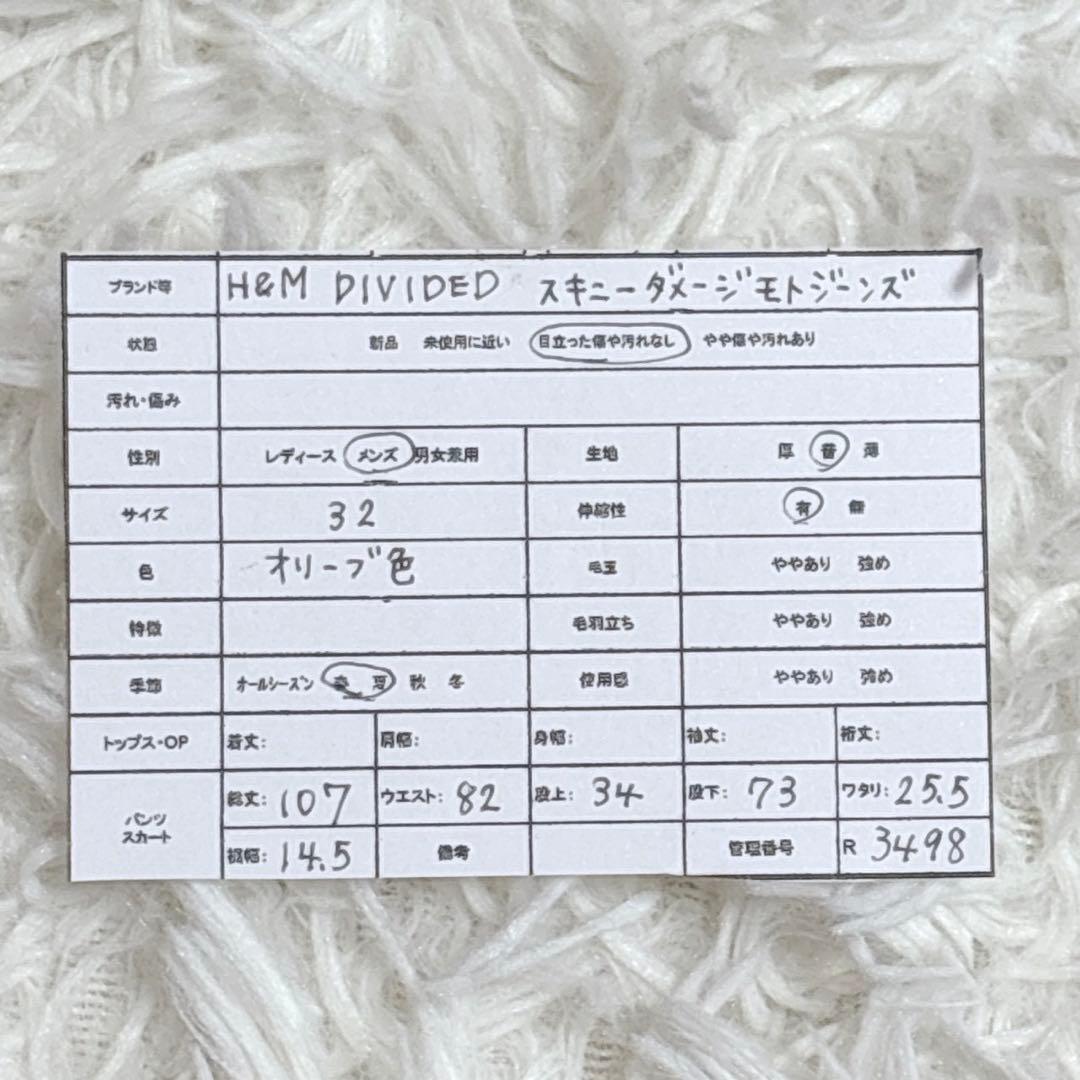 ブランド等 H&M DIVIDED スキニーダメージモトジーンズ
状態 新品 未使用に近い 目立った傷や汚れなし やや傷や汚れあり
汚れ・傷み
性別 レディース メンズ 男女兼用 生地 厚 普 薄
サイズ 32 伸縮性 有 無
色 オリーブ色 毛玉 ややあり 強め
特徴 毛羽立ち ややあり 強め
季節 オールシーズン 春 夏 秋 冬 使用感 ややあり 強め
トップス・OP 着丈: 肩幅: 身幅: 袖丈: 裄丈:
パンツ
スカート
総丈: 107 ウエスト: 82 股上: 34 股下: 73 ワタリ: 25.5
裾幅: 14.5 備考 管理番号 R 3498